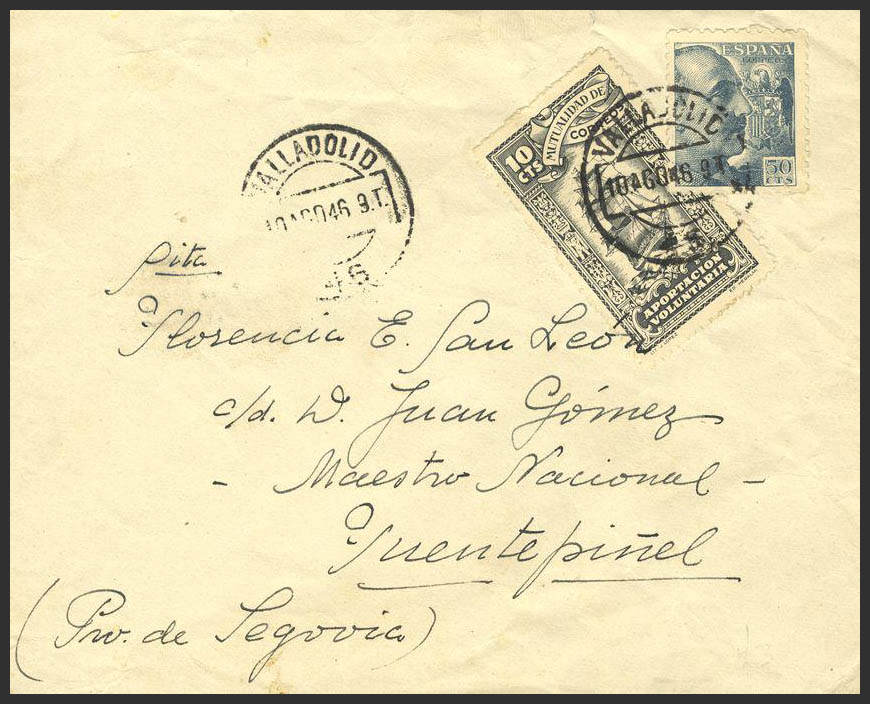 ESPAÑA
CORREOS
50
CTS
MUTUALIDAD DE
CORREOS
10
CTS
APORTACION
VOLUNTARIA
VALLADOLID
10 AGO 46 9.T.
VALLADOLID
10 AGO 46 9.T.
Florencia E. San León
c/d. D. Juan Gómez
- Maestro Nacional -
Fuentepiñel
(Prov. de Segovia)